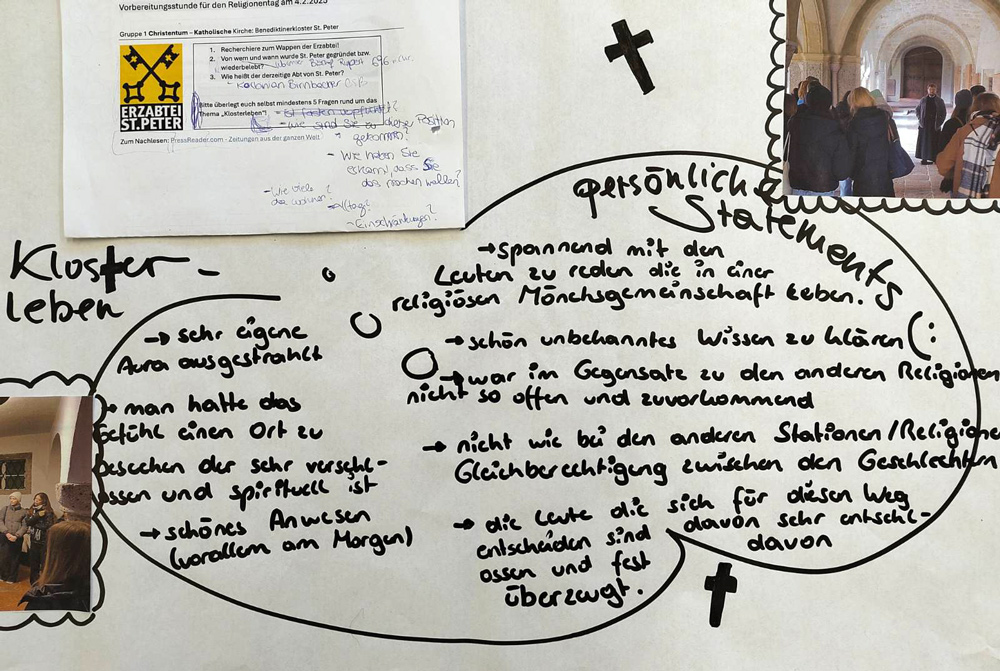 Vorbereitungsstunde für den Religionentag am 4.2.2025
Gruppe 1 Christentum – Katholische Kirche: Benediktinerkloster St. Peter
1. Recherchiere zum Wappen der Erzabtei!
2. Von wem und wann wurde St. Peter gegründet bzw.
wiederbelebt? Bischof Rupert 696 n. Chr.
3. Wie heißt der derzeitige Abt von St. Peter?
Birnbacher
Bitte überlegt euch selbst mindestens 5 Fragen rund um das
Thema „Klosterleben"!
- wie sind Sie zu dieser Position
gekommen?
ERZABTEI
ST.PETER
Zum Nachlesen: PressReader.com - Zeitungen aus der ganzen Welt
- Wie haben Sie
erkannt, dass Sie
das machen wollen?
- Wie viele
da wohnen?
- Alltag?
- Einschränkungen?
Kloster-
leben
→ sehr eigene
Aura ausgestrahlt
→ man hatte das
Gefühl einen Ort zu
besuchen der sehr verschl-
ossen und spirituell ist
→ schönes Anwesen
(vorallem am Morgen)
persönliche
Statements
→ spannend mit den
Leuten zu reden die in einer
religiösen Mönchsgemeinschaft leben.
→ schön unbekanntes Wissen zu klären (:
→ war im Gegensatz zu den anderen Religionen
nicht so offen und zuvorkommend
→ nicht wie bei den anderen Stationen/Religionen
Gleichberechtigung zwischen den Geschlechtern
→ die Leute die sich für diesen Weg
entscheiden sind davon sehr entschl-
ossen und fest davon
überzeugt.